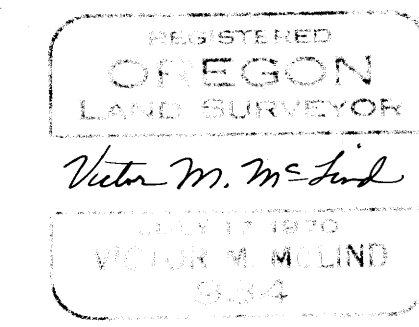 REGISTERED
OREGON
LAND SURVEYOR
Victor M. McLind
JULY 17 1970
VICTOR M. MCLIND
934